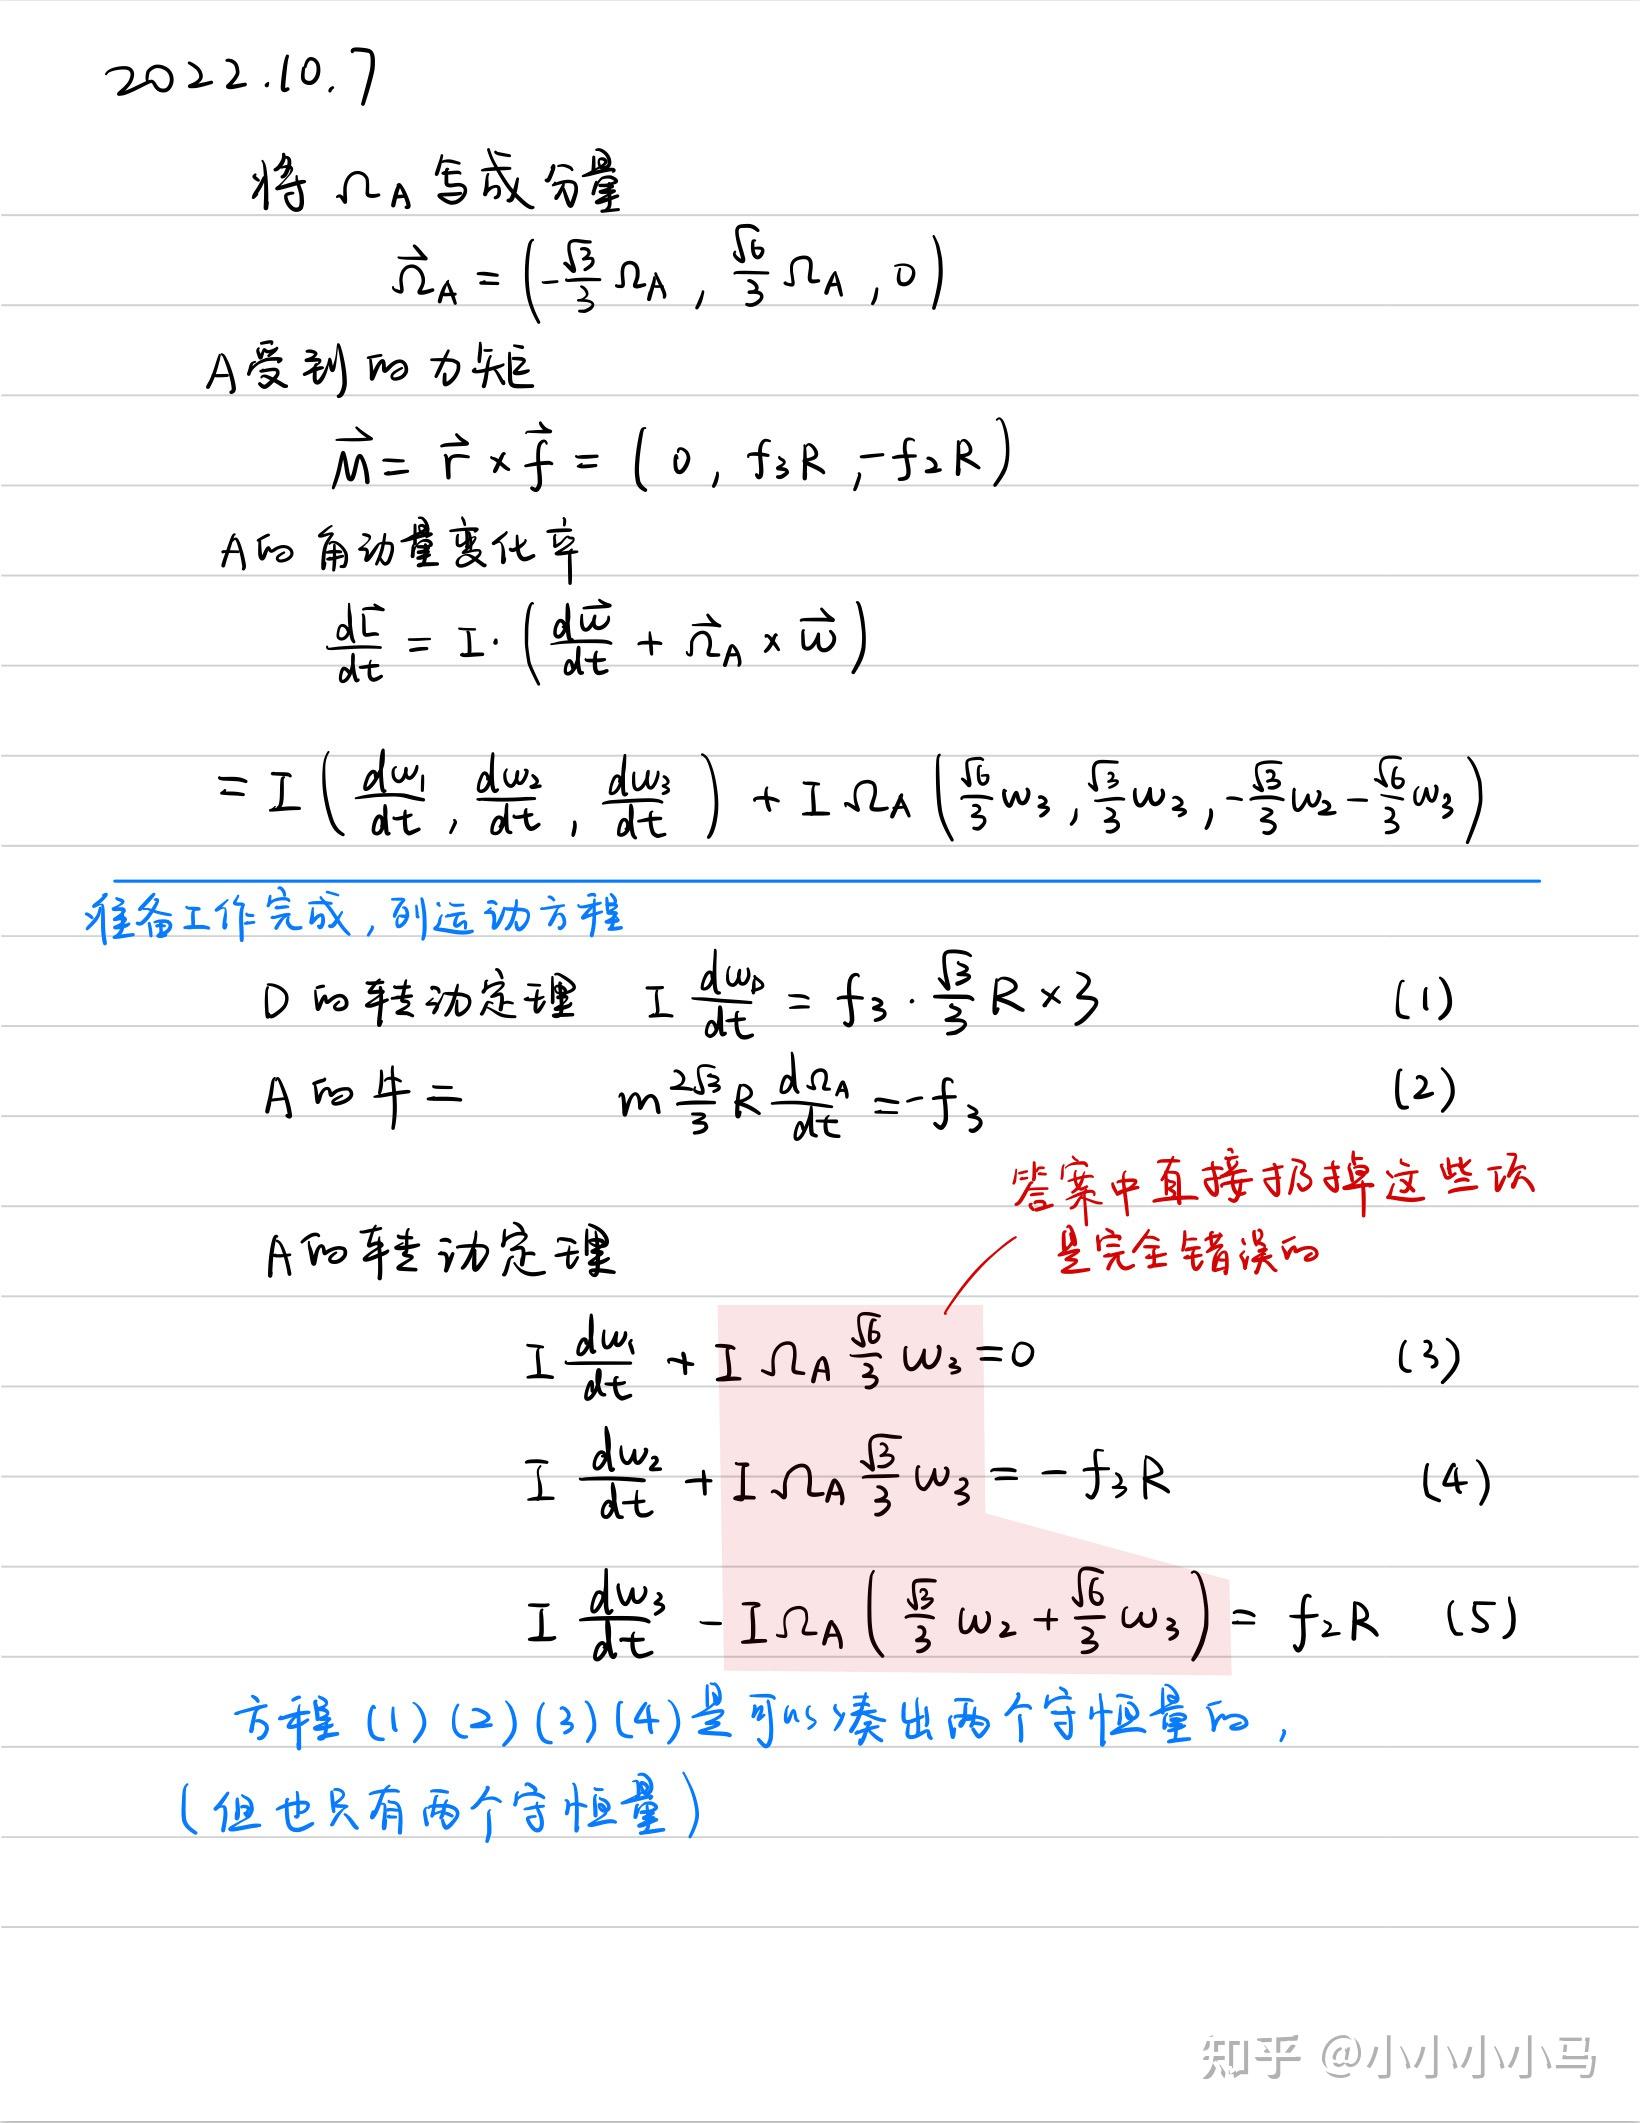 2022.10.7
将 Ω_A 写成分量
\vec{Ω}_A = (-\frac{√3}{3} Ω_A , \frac{√6}{3} Ω_A , 0)
A受到的力矩
\vec{M} = \vec{r} × \vec{f} = ( 0 , f_3 R , -f_2 R )
A的角动量变化率
\frac{d\vec{L}}{dt} = I · ( \frac{d\vec{ω}}{dt} + \vec{Ω}_A × \vec{ω} )
= I ( \frac{dω_1}{dt} , \frac{dω_2}{dt} , \frac{dω_3}{dt} ) + I Ω_A ( \frac{√6}{3} ω_3 , \frac{√3}{3} ω_3 , -\frac{√3}{3} ω_2 - \frac{√6}{3} ω_3 )
准备工作完成,列运动方程
D的转动定理 I \frac{dω_D}{dt} = f_3 · \frac{√3}{3} R × 3 (1)
A的牛二 m \frac{2√3}{3} R \frac{dΩ_A}{dt} = -f_3 (2)
答案中直接扔掉这些项
是完全错误的
A的转动定理
I \frac{dω_1}{dt} + I Ω_A \frac{√6}{3} ω_3 = 0 (3)
I \frac{dω_2}{dt} + I Ω_A \frac{√3}{3} ω_3 = - f_3 R (4)
I \frac{dω_3}{dt} - I Ω_A ( \frac{√3}{3} ω_2 + \frac{√6}{3} ω_3 ) = f_2 R (5)
方程 (1) (2) (3) (4) 是可以凑出两个守恒量的,
(但也只有两个守恒量)
知乎 @小小小小马